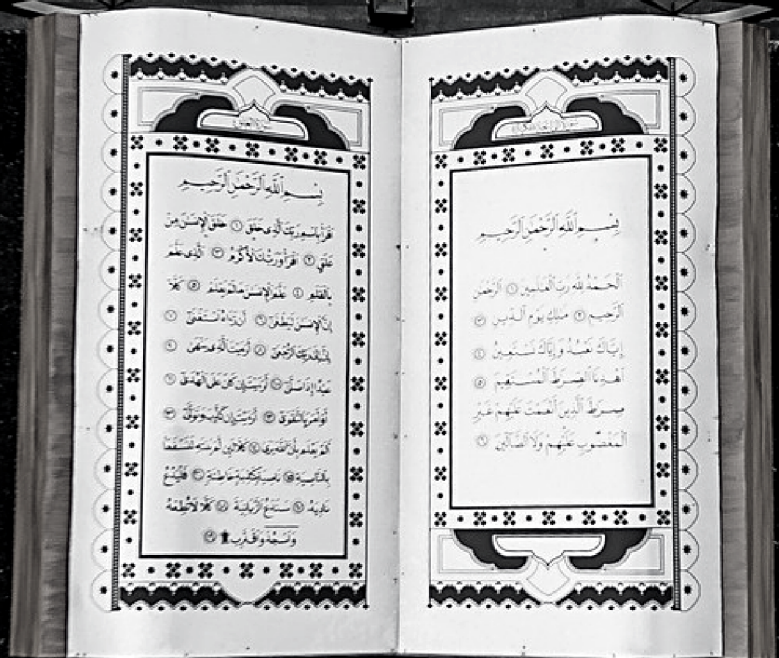 سورة الفاتحة مكية
بِسْمِ اللَّهِ الرَّحْمَٰنِ الرَّحِيمِ
الْحَمْدُ لِلَّهِ رَبِّ الْعَالَمِينَ ١ الرَّحْمَٰنِ
الرَّحِيمِ ٢ مَالِكِ يَوْمِ الدِّينِ ٣
إِيَّاكَ نَعْبُدُ وَإِيَّاكَ نَسْتَعِينُ ٤
اهْدِنَا الصِّرَاطَ الْمُسْتَقِيمَ ٥
صِرَاطَ الَّذِينَ أَنْعَمْتَ عَلَيْهِمْ غَيْرِ
الْمَغْضُوبِ عَلَيْهِمْ وَلَا الضَّالِّينَ ٦
سورة العلق
بِسْمِ اللَّهِ الرَّحْمَٰنِ الرَّحِيمِ
اقْرَأْ بِاسْمِ رَبِّكَ الَّذِي خَلَقَ ١ خَلَقَ الْإِنسَانَ مِنْ
عَلَقٍ ٢ اقْرَأْ وَرَبُّكَ الْأَكْرَمُ ٣ الَّذِي عَلَّمَ
بِالْقَلَمِ ٤ عَلَّمَ الْإِنسَانَ مَا لَمْ يَعْلَمْ ٥ كَلَّا
إِنَّ الْإِنسَانَ لَيَطْغَىٰ ٦ أَن رَّآهُ اسْتَغْنَىٰ ٧
إِنَّ إِلَىٰ رَبِّكَ الرُّجْعَىٰ ٨ أَرَأَيْتَ الَّذِي يَنْهَىٰ ٩
عَبْدًا إِذَا صَلَّىٰ ١٠ أَرَأَيْتَ إِن كَانَ عَلَى الْهُدَىٰ ١١
أَوْ أَمَرَ بِالتَّقْوَىٰ ١٢ أَرَأَيْتَ إِن كَذَّبَ وَتَوَلَّىٰ ١٣
أَلَمْ يَعْلَم بِأَنَّ اللَّهَ يَرَىٰ ١٤ كَلَّا لَئِن لَّمْ يَنتَهِ لَنَسْفَعًا
بِالنَّاصِيَةِ ١٥ نَاصِيَةٍ كَاذِبَةٍ خَاطِئَةٍ ١٦ فَلْيَدْعُ
نَادِيَهُ ١٧ سَنَدْعُ الزَّبَانِيَةَ ١٨ كَلَّا لَا تُطِعْهُ
وَاسْجُدْ وَاقْتَرِب ۩ ١٩